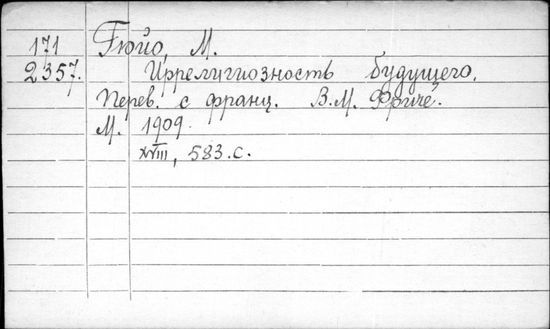 171 Гюйо, М.
2357. Иррелигиозность будущего.
Перев. с франц. В.М. Фриче.
М. 1909.
XVIII, 583.с.